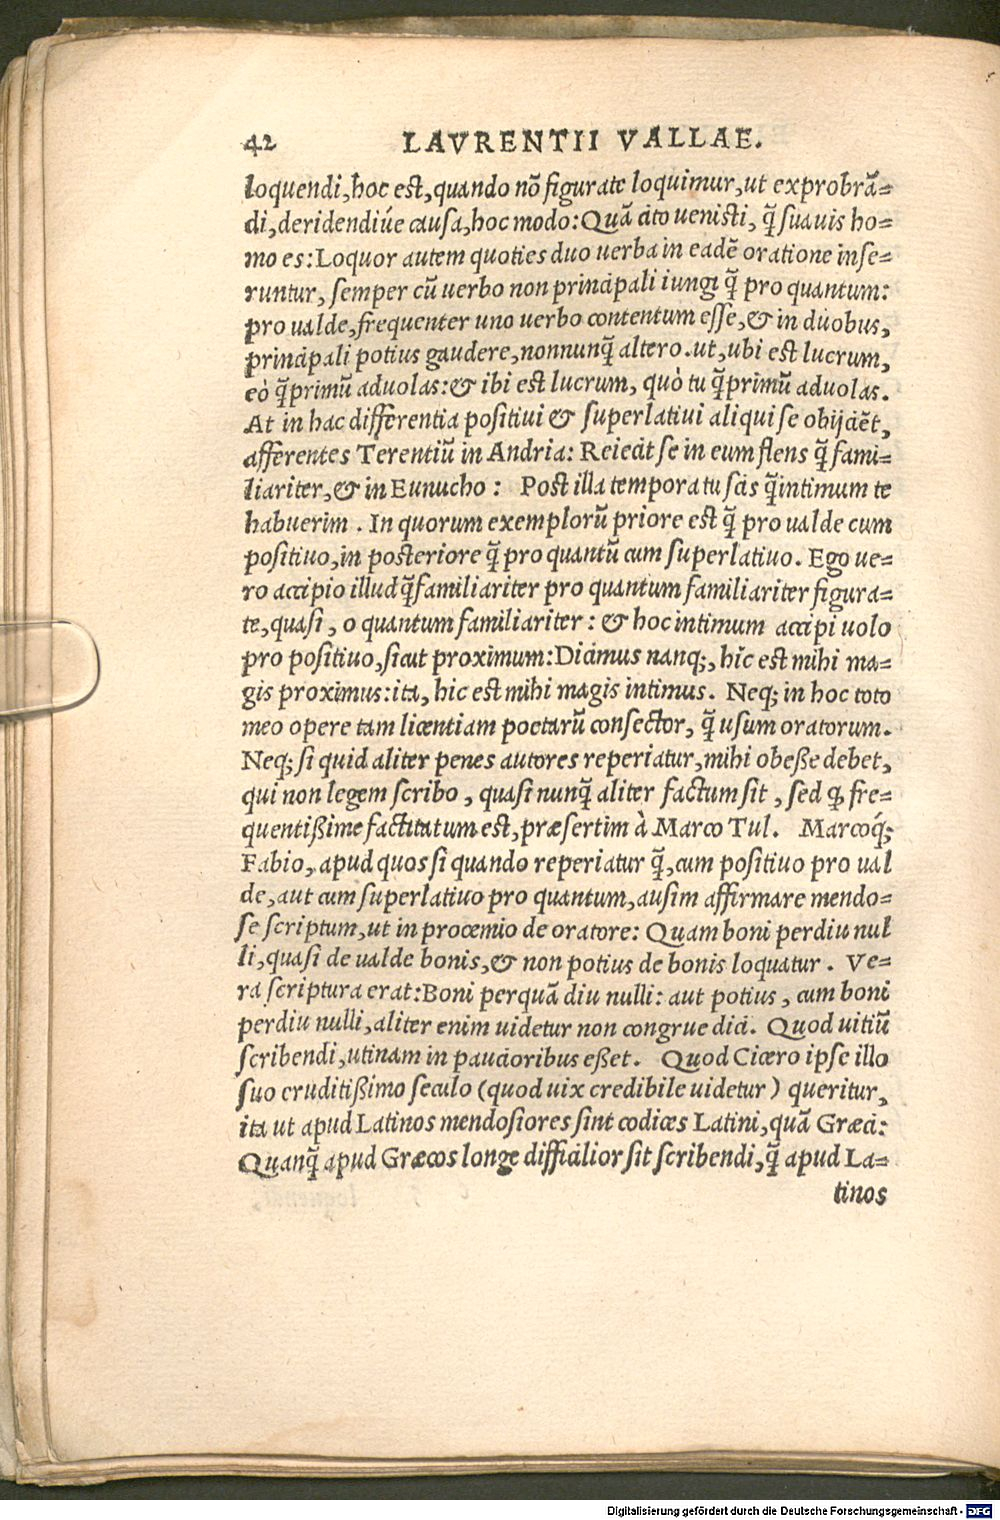 42 LAVRENTII VALLAE.
loquendi, hoc est, quando nõ figurate loquimur, ut exprobrã=
di, deridendiúe causa, hoc modo: Quã cito uenisti, q̃ suauis ho=
mo es: Loquor autem quoties duo uerba in eadẽ oratione inse=
runtur, semper cũ uerbo non principali iungi q̃ pro quantum:
pro ualde, frequenter uno uerbo contentum esse, & in duobus,
principali potius gaudere, nonnunq̃ altero. ut, ubi est lucrum,
eò q̃primũ aduolas: & ibi est lucrum, quò tu q̃primũ aduolas.
At in hac differentia positiui & superlatiui aliqui se obijciẽt,
afferentes Terentiũ in Andria: Reiecit se in eum flens q̃ fami=
liariter, & in Eunucho: Post illa tempora tu scis q̃intimum te
habuerim. In quorum exemplorũ priore est q̃ pro ualde cum
positiuo, in posteriore q̃ pro quantũ cum superlatiuo. Ego ue=
ro accipio illud q̃familiariter pro quantum familiariter figura=
te, quasi, o quantum familiariter: & hoc intimum accipi uolo
pro positiuo, sicut proximum: Dicimus nanq;, hic est mihi ma=
gis proximus: ita, hic est mihi magis intimus. Neq; in hoc toto
meo opere tam licentiam poetarũ consector, q̃ usum oratorum.
Neq; si quid aliter penes autores reperiatur, mihi obeße debet,
qui non legem scribo, quasi nunq̃ aliter factum sit, sed ꝙ fre=
quentißime factitatum est, præsertim à Marco Tul. Marcoq́;
Fabio, apud quos si quando reperiatur q̃, cum positiuo pro val
de, aut cum superlatiuo pro quantum, ausim affirmare mendo=
se scriptum, ut in procemio de oratore: Quam boni perdiu nul
li, quasi de ualde bonis, & non potius de bonis loquatur. Ve=
ra scriptura erat: Boni perquã diu nulli: aut potius, cum boni
perdiu nulli, aliter enim uidetur non congrue dici. Quod uitiũ
scribendi, utinam in paucioribus eßet. Quod Cicero ipse illo
suo eruditißimo seculo (quod uix credibile uidetur) queritur,
ita ut apud Latinos mendosiores sint codices Latini, quã Græci:
Quanq̃ apud Græcos longe difficilior sit scribendi, q̃ apud La=
tinos
Digitalisierung gefördert durch die Deutsche Forschungsgemeinschaft - DFG